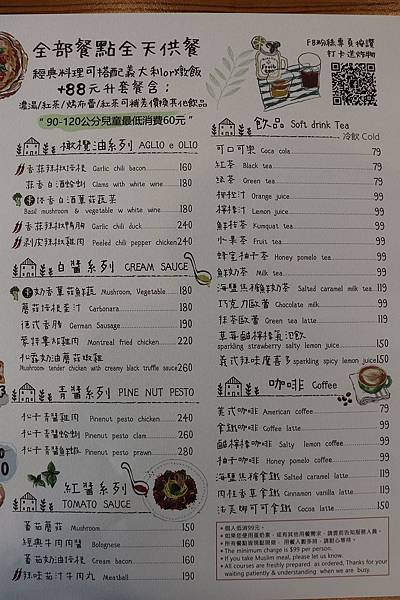 全部餐點全天供餐
經典料理可搭配義大利or燉飯
+88元升套餐含:
濃湯/紅茶/烤布蕾/紅茶可補差價換其他飲品
" 90-120公分兒童最低消費60元 "
FB粉絲專頁按讚
打卡送烤物
橄欖油系列 AGLIO e OLIO
香蒜辣椒培根 Garlic chili bacon 160
蒜香白酒蛤蜊 Clams with white wine 180
白酒蕈菇蔬菜
Basil mushroom & vegetable w white wine 180
香蒜辣椒鴨胸 Garlic chili duck 240
剝皮辣椒雞肉 Peeled chili pepper chicken 240
白醬系列 CREAM SAUCE
奶香蕈菇鮮蔬 Mushroom, Vegetable 180
蘑菇培根蛋汁 Carbonara 180
德式香腸 German Sausage 190
蒙特婁炸雞肉 Montreal fried chicken 220
松露奶油蘑菇嫩雞
Mushroom tender chicken with creamy black truffle sauce 260
青醬系列 PINE NUT PESTO
松子青醬雞肉 Pinenut pesto chicken 240
松子青醬蛤蜊 Pinenut pesto clam 260
松子青醬鮮蝦 Pinenut pesto prawn 280
紅醬系列
TOMATO SAUCE
蕃茄蘑菇 Mushroom 150
經典牛肉肉醬 Bolognese 160
蕃茄奶油培根 Cream bacon 160
辣味茄汁牛肉丸 Meatball 190
飲品 Soft drink Tea
冷飲 Cold
可口可樂 Coca cola 79
紅茶 Black tea 79
綠茶 Green tea 79
柳橙汁 Orange juice 99
檸檬汁 Lemon juice 99
鮮桔茶 Kumquat tea 99
水果茶 Fruit tea 99
蜂蜜柚子茶 Honey pomelo tea 99
鮮奶茶 Milk tea 99
海鹽焦糖鮮奶茶 Salted caramel milk tea 119
巧克力歐蕾 Chocolate milk 99
抹茶歐蕾 Green tea latte 119
草莓鹹檸檬氣泡飲
sparkling strawberry salty lemon juice 150
義式辣味魔喜多 sparkling spicy lemon juice 150
咖啡 Coffee
美式咖啡 American coffee 79
拿鐵咖啡 Coffee latte 99
鹹檸檬咖啡 Salty lemon coffee 99
柚子咖啡 Honey pomelo coffee 99
海鹽焦糖拿鐵 Salted caramel latte 119
肉桂香草拿鐵 Cinnamon vanilla latte 119
法芙娜可可拿鐵 Cocoa latte 150
• 個人低消99元。
• 如果您使用蛋奶素，或有其他用餐需求，請提前告知服務人員。
• 所有餐點皆現點現做，用餐人數多時，請耐心等候。
• The minimum charge is $99 per person.
• If you take Muslim meal, please let us know.
• All courses are freshly prepared as ordered, Thanks for your
waiting patiently & understanding when we are busy.